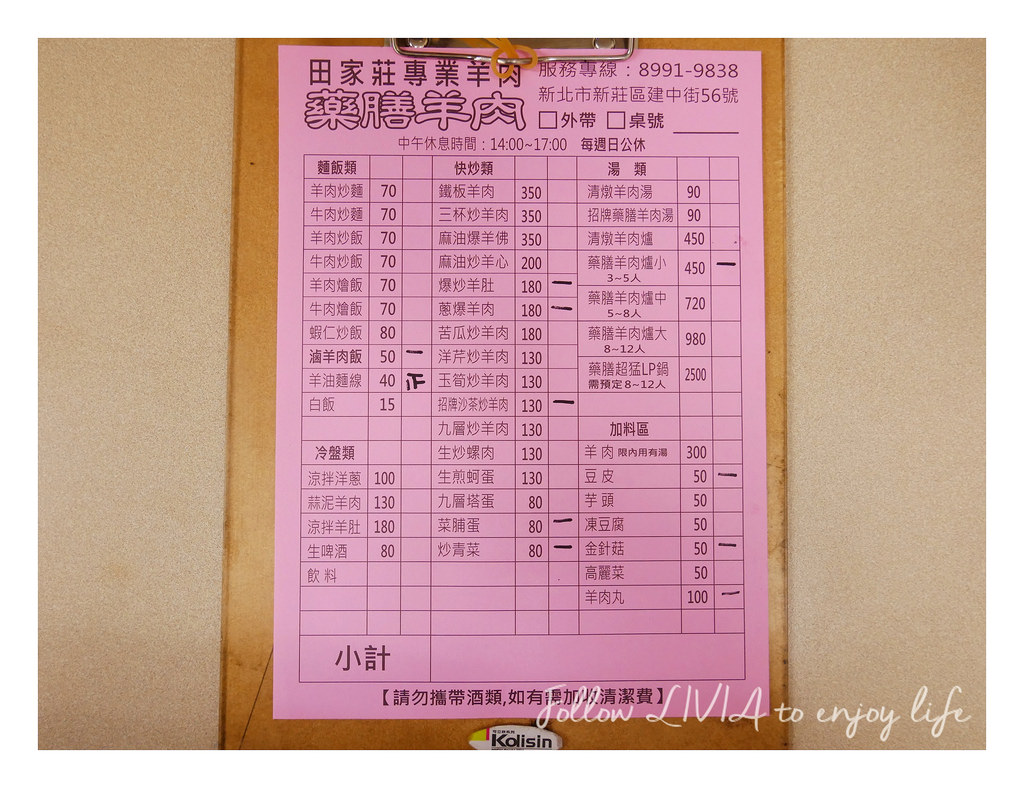 田家莊專業羊肉
藥膳羊肉
服務專線：8991-9838
新北市新莊區建中街56號
外帶 桌號
中午休息時間：14:00~17:00 每週日公休
麵飯類
羊肉炒麵 70
牛肉炒麵 70
羊肉炒飯 70
牛肉炒飯 70
羊肉燴飯 70
牛肉燴飯 70
蝦仁炒飯 80
滷羊肉飯 50 一
羊油麵線 40 正
白飯 15
冷盤類
涼拌洋蔥 100
蒜泥羊肉 130
涼拌羊肚 180
生啤酒 80
飲料
快炒類
鐵板羊肉 350
三杯炒羊肉 350
麻油爆羊佛 350
麻油炒羊心 200
爆炒羊肚 180 一
蔥爆羊肉 180 一
苦瓜炒羊肉 180
洋芹炒羊肉 130
玉筍炒羊肉 130
招牌沙茶炒羊肉 130 一
九層炒羊肉 130
生炒螺肉 130
生煎蚵蛋 130
九層塔蛋 80
菜脯蛋 80 一
炒青菜 80 一
湯 類
清燉羊肉湯 90
招牌藥膳羊肉湯 90
清燉羊肉爐 450
藥膳羊肉爐小 450 一
3~5人
藥膳羊肉爐中 720
5~8人
藥膳羊肉爐大 980
8~12人
藥膳超猛LP鍋 2500
需預定8~12人
加料區
羊肉 限內用有湯 300
豆皮 50 一
芋頭 50
凍豆腐 50
金針菇 50 一
高麗菜 50
羊肉丸 100 一
小計
【請勿攜帶酒類,如有需加收清潔費】
Follow LIVIA to enjoy life
Kolisin